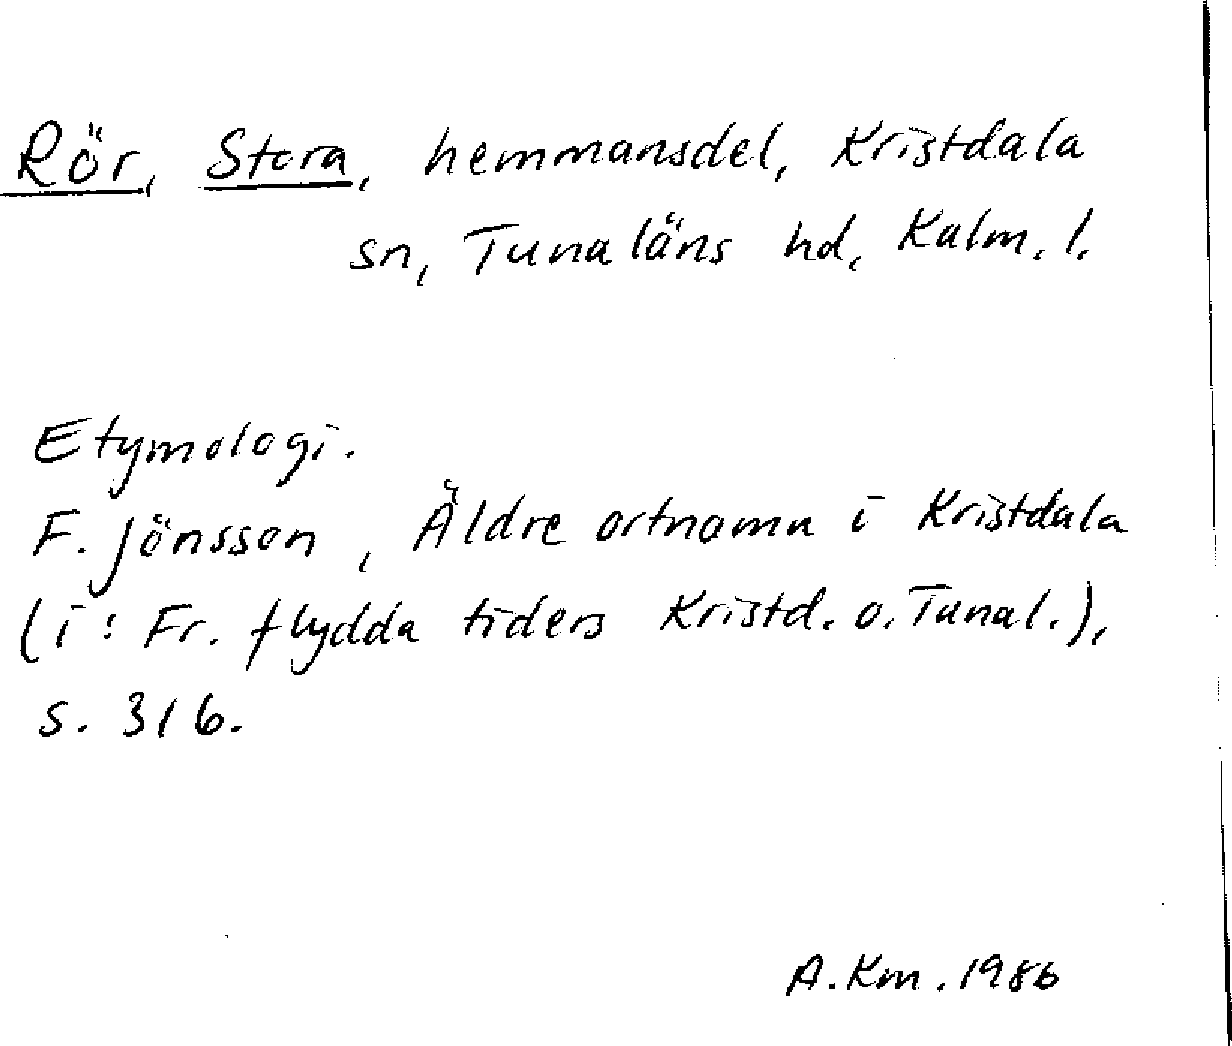 Rör, Stora, hemmansdel, Kristdala
sn, Tunaläns hd, Kalm. l.
Etymologi.
F. Jönsson, Äldre ortnamn i Kristdala
(i: Fr. flydda tiders Kristd. o. Tunal.),
s. 316.
A. Km. 1986